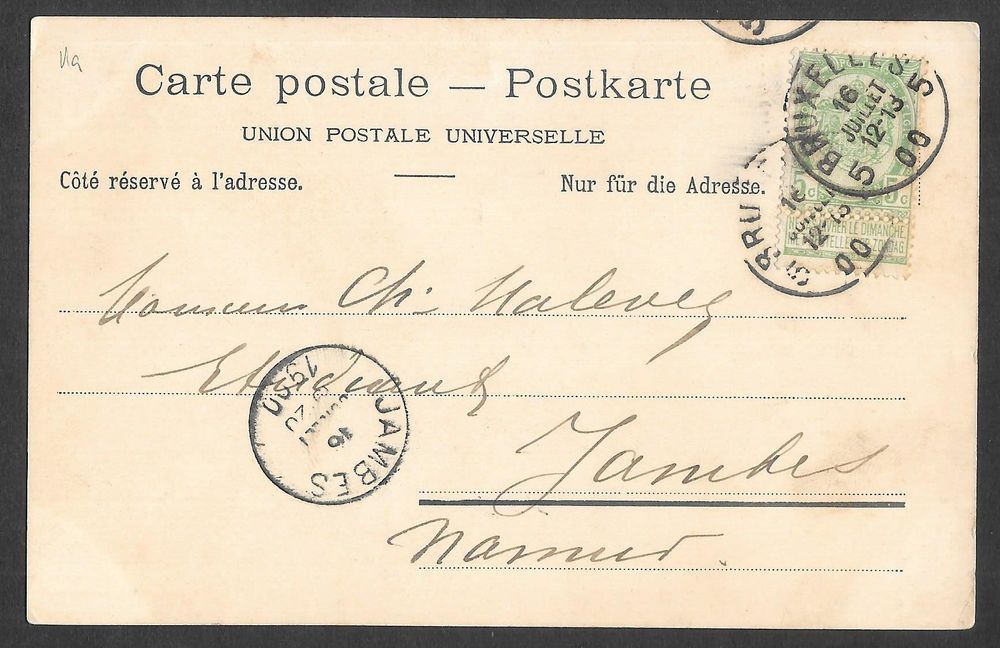 Carte postale — Postkarte
UNION POSTALE UNIVERSELLE
Côté réservé à l'adresse.
Nur für die Adresse.
BRUXELLES 5
16
JUILLET
12-13
00
5
5c 5c
BRUX
16
12-13
00
NE PAS LIVRER LE DIMANCHE
NIET BESTELLEN OP ZONDAG
Monsieur Ch. Halevey
Etudiant
Jambes
Namur.
JAMBES
16